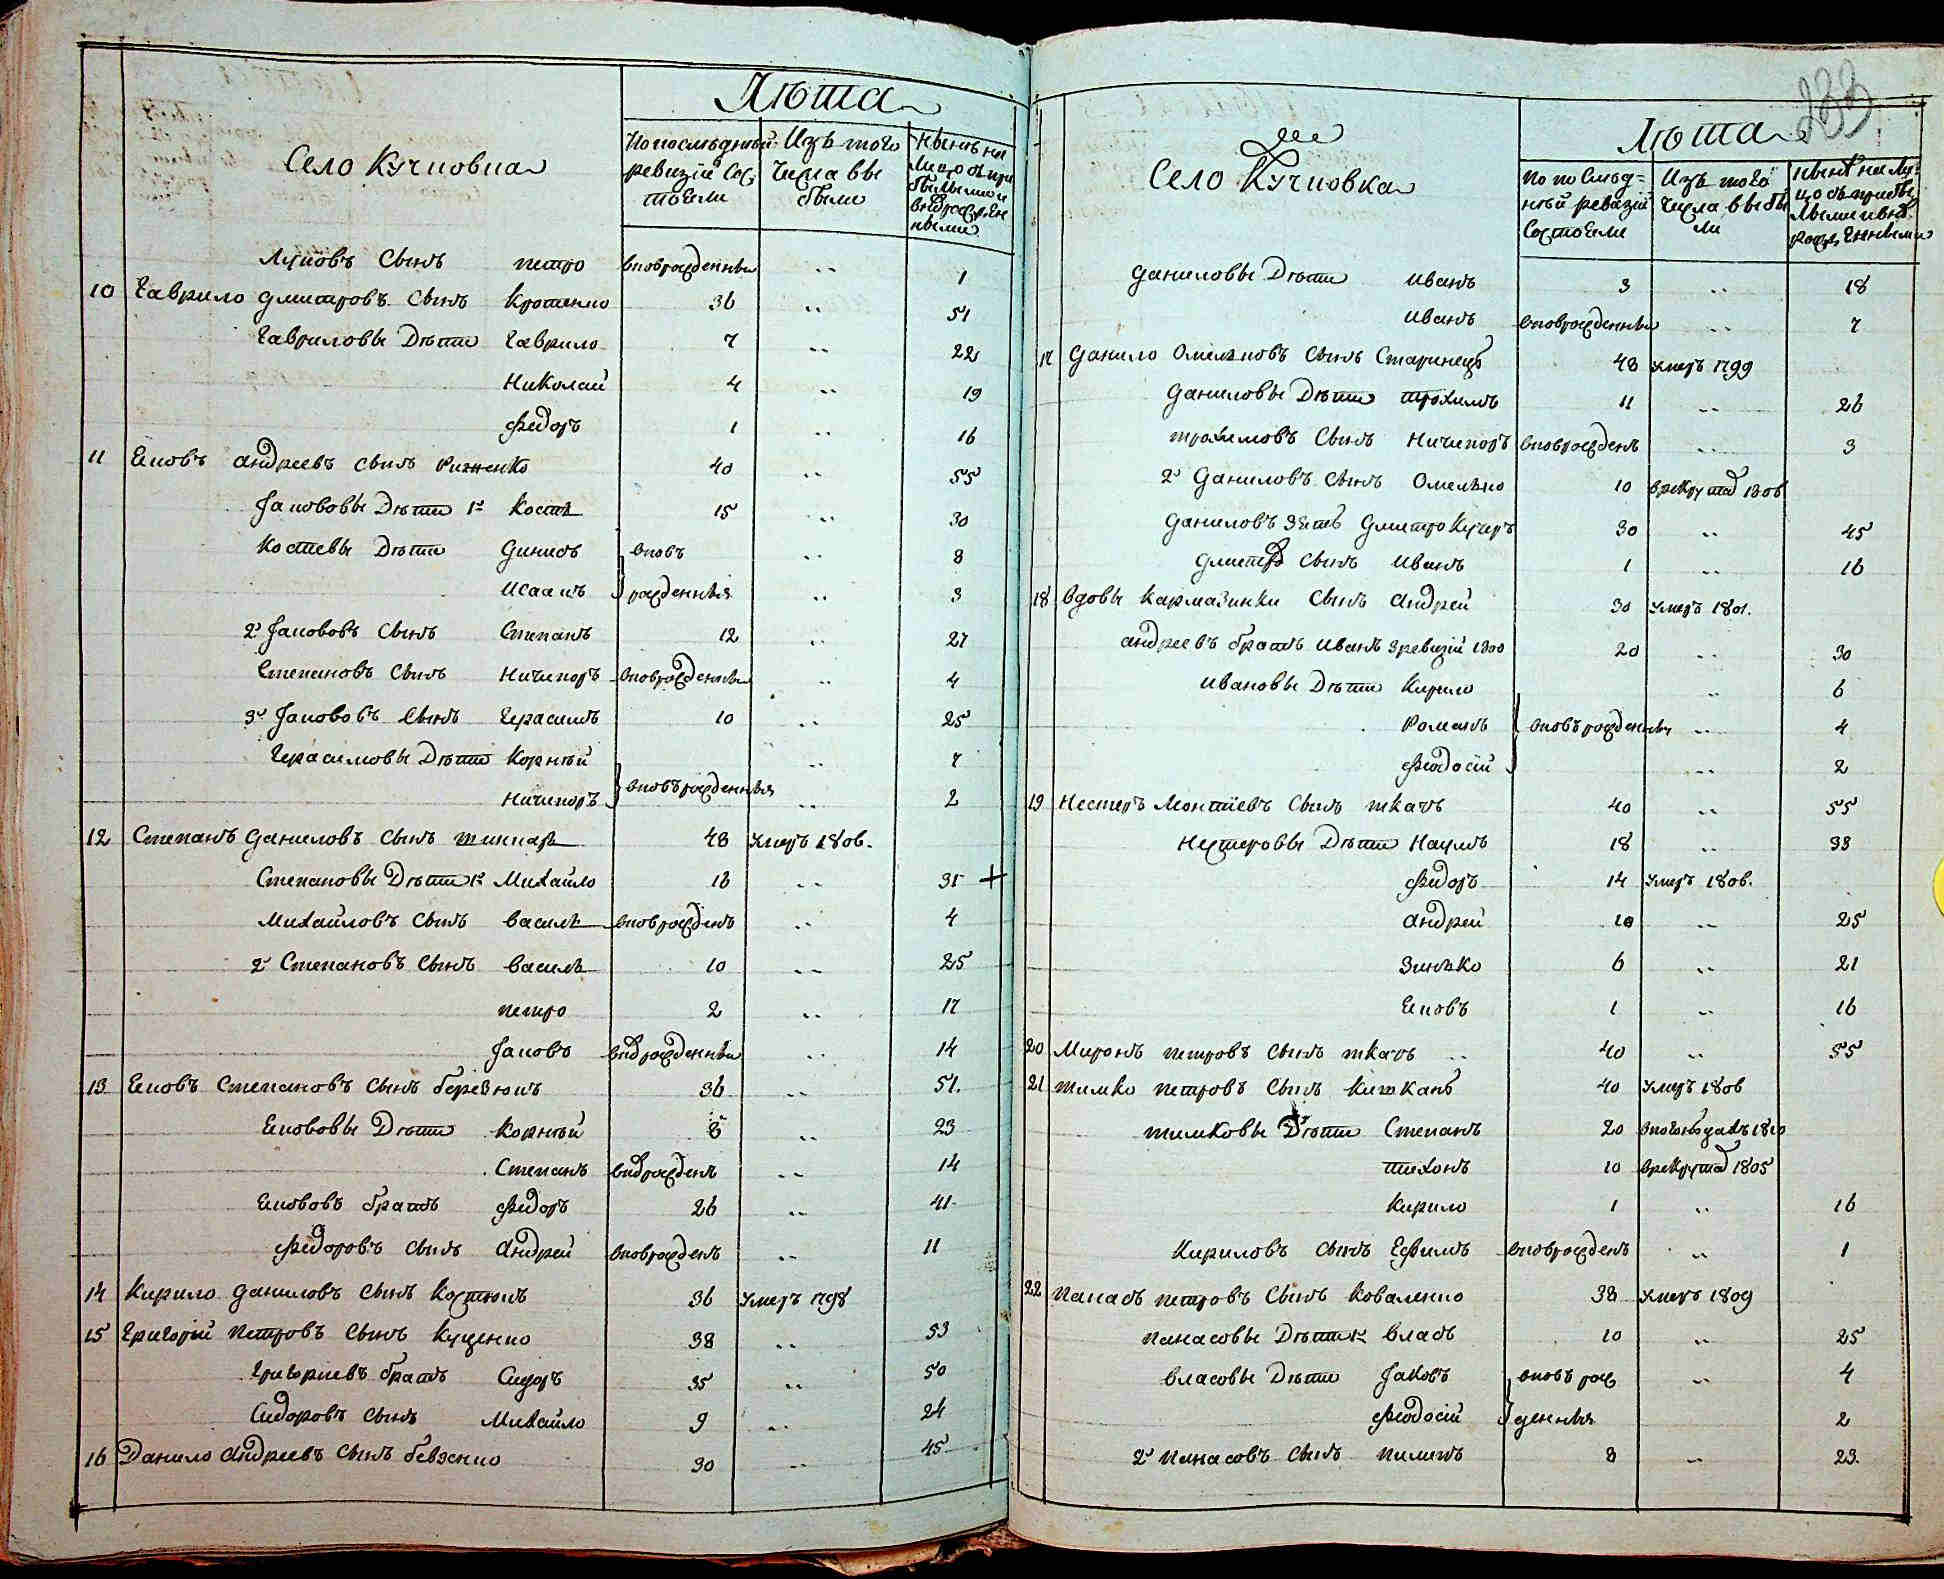 Лѣта
Село Кучковка
По последней ревизіи состояли
Изъ того числа выбыли
Нынѣ на лицо съ прибылыми и внврожденными
сынъ Петро вновроржденны „ 1
10 Гаврило Дмитровъ сынъ Кротенко 36 „ 51
Гавриловы Дѣти Гаврило 7 „ 22
Николай 4 „ 19
Федоръ 1 „ 16
11 Яковъ Андреевъ сынъ 40 „ 55
Яковovы Дѣти 1й Костя 15 „ 30
Костевы Дѣти Динисъ вновъ „ 8
Исаакъ рожденныя „ 3
2й Яковovъ сынъ Степанъ 12 „ 27
Степановъ сынъ Ничипоръ „ 4
3й Яковovъ сынъ Герасимъ 10 „ 25
Герасимовы Дѣти Корнѣй „ 7
Ничипоръ вновъ рожденныя „ 2
12 Степанъ Даниловъ сынъ 48 умеръ 1806.
Степановы Дѣти 1й Михайло 16 „ 31 +
Михайловъ сынъ Василь вноврожденъ „ 4
2й Степановъ сынъ Василь 10 „ 25
Петро 2 „ 17
Яковъ „ 14
13 Яковъ Степановъ сынъ 36 „ 51.
Дѣти Корнѣй 8 „ 23
Степанъ „ 14
братъ Федоръ 26 „ 41
Федоровъ сынъ Андрей вноврожденъ „ 11
14 Кирило Даниловъ сынъ Костюкъ 36 умеръ 798
15 Григорій Петровъ сынъ Куценко 38 „ 53
Григориевъ братъ Сидоръ 35 „ 50
Сидоровъ сынъ Михайло 9 „ 24
16 Данило Андреевъ сынъ Бевзенко 30 „ 45
233
Лѣта
Село Кучковка
По последней ревизіи состояли
Изъ того числа выбыли
Нынѣ на лицо съ прибылыми и внов рожденными
Даниловы Дѣти Иванъ 3 „ 18
Иванъ „ 7
17 Данило Омельковъ сынъ Старинецъ 48 умеръ 1799
Даниловы Дѣти Трохимъ 11 „ 26
Трохимовъ сынъ Ничипоръ вноврожденъ „ 3
2й Даниловъ сынъ Омелько 10 1806
Даниловъ зять Дмитро Кучеръ 30 „ 45
сынъ Иванъ 1 „ 16
18 Вдовы Кармазинки сынъ Андрей 30 умеръ 1801.
Андреевъ братъ Иванъ 20 „ 30
Ивановы Дѣти Кирило „ 6
Романъ вновъ рожденныя „ 4
Феодосій „ 2
19 Нестеръ сынъ Ткачъ 40 „ 55
Нестеровы Дѣти Наумъ 18 „ 33
Федоръ 14 умеръ 1806.
Андрей 10 „ 25
Зинько 6 „ 21
Яковъ 1 „ 16
20 Миронъ Петровъ сынъ Ткачъ 40 „ 55
21 Тимко Петровъ сынъ 40 умеръ 1806
Тимковы Дѣти Степанъ 20
Тихонъ 10 1805
Кирило 1 „ 16
Кириловъ сынъ Ефимъ вноврожденъ „ 1
22 Панасъ Петровъ сынъ Коваленко 38 умеръ 1809
Панасовы Дѣти 1й Власъ 10 „ 25
Власовы Дѣти Яковъ вновъ рож „ 4
Феодосій денныя 2
2й Панасовъ сынъ Пилипъ 8 „ 23.